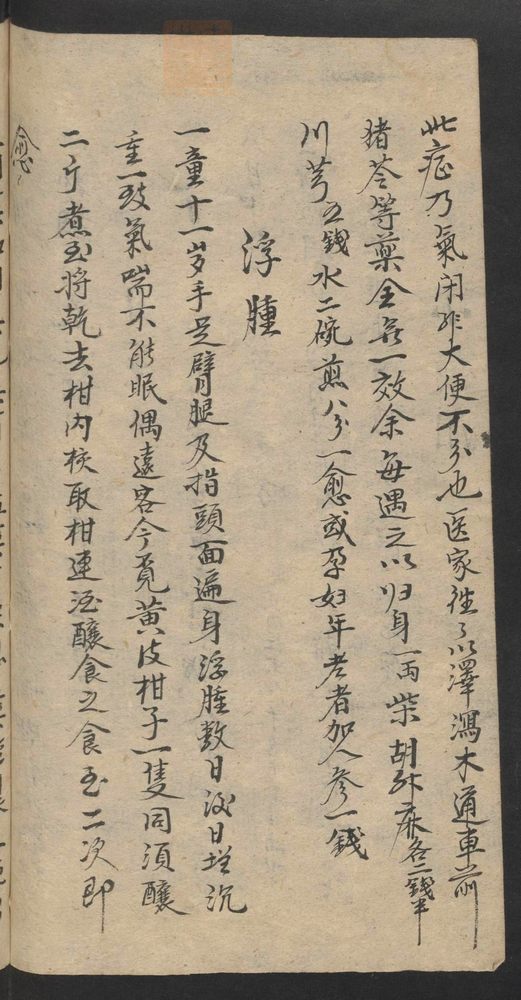 此症乃氣闭非大便不分也医家徃〻以澤瀉木通車前
猪苓等藥全無一效余每遇之以归身一両柴胡升麻各二錢半
川芎五錢水二碗煎八分一愈或孕妇年老者加人参一錢
浮腫
一童十一岁手足臂腿及指頭面遍身浮腫数日後日增沉
重一致氣喘不能眠偶遠客令覓黄皮柑子一隻同須釀
二斤煮至將乾去柑内核取柑連酒釀食之食至二次即
愈